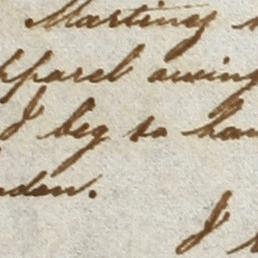 Martiney
pparel owing
I beg to hav
ndon.
I